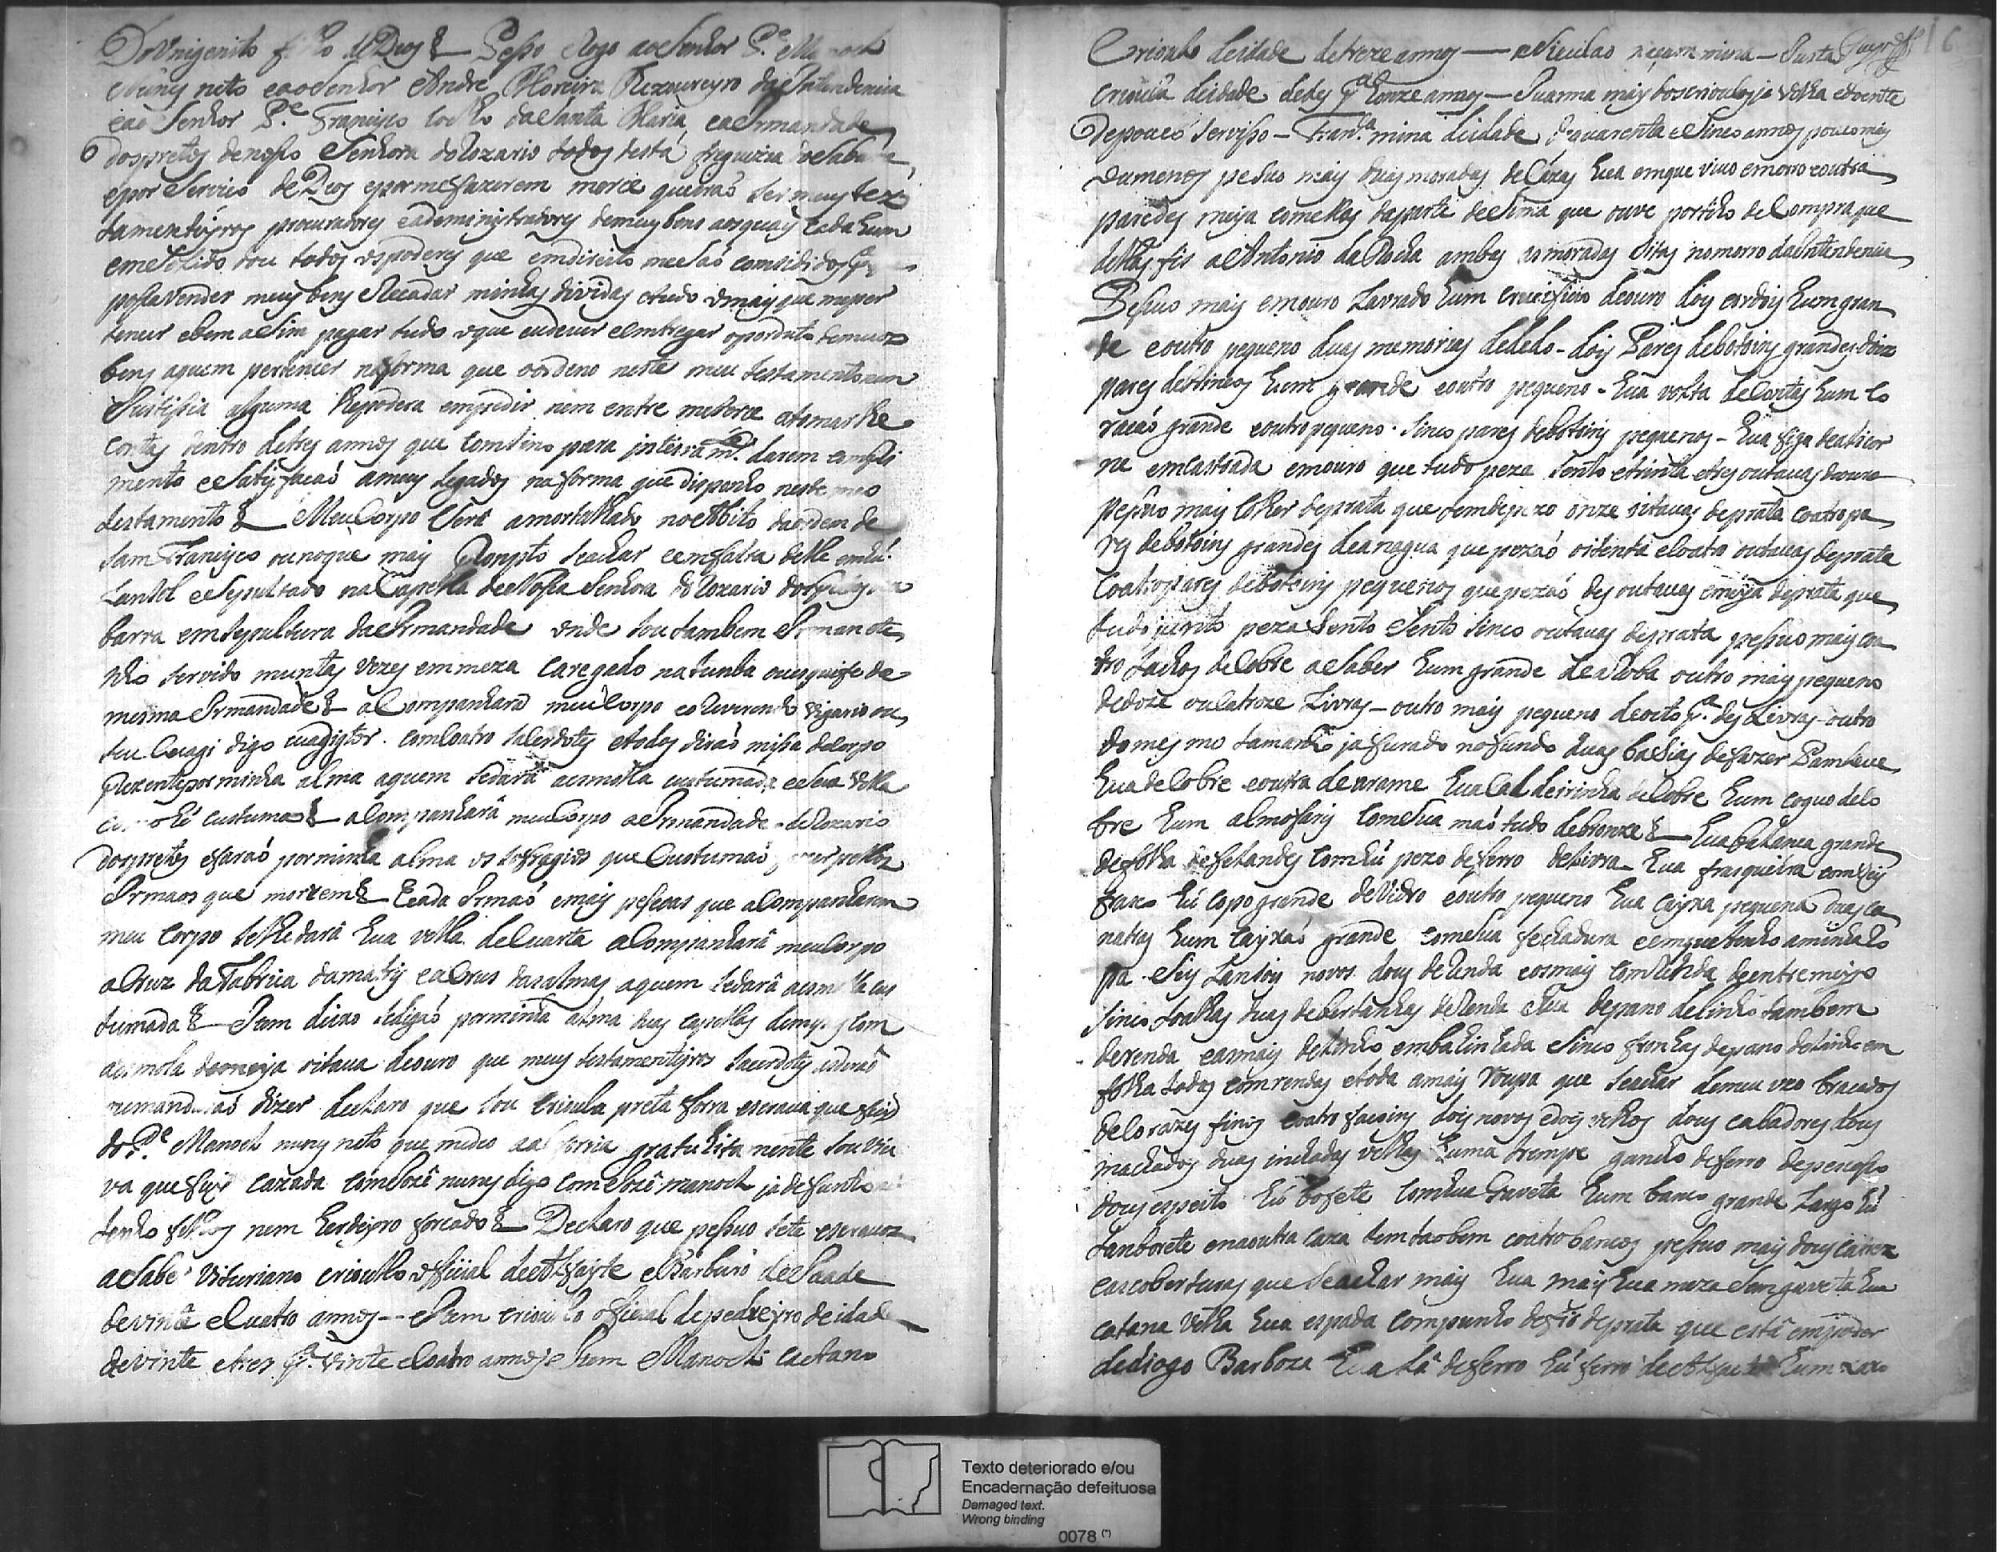 Do Vnigenito f.º de Deos & Pesso e Rogo ao Senhor P.e Manoel
Nunes neto e ao Senhor Andre Moreira Thezoureyro da Intendencia
e ao Senhor P.e Francisco Coelho da Santa Maria e a Ermandade
dos pretos de nossa Senhora do Rozario todos desta freguezia do Sabara
e por Servico de Deos e por me fazerem merce queirão ser meus tes
tamenteyros procuradores eadeministradores de meus bens aos quais Cada hum
em Solido dou todos os poderes que em direito me são Comsididos
possa vender meus bens Recadar minhas dividas e tudo o mais que me per
tencer e bem asim pagar tudo o que eu dever e emtregar o produto de meos
bens aquem pertencer na forma que ordeno neste meu testamento sem
Justissia alguma lhe podera empedir nem entre meterce a tomar lhe
contas dentro de tres annos que comsino para inteira m.te darem compri
mento e Satisfacaõ a meus Legados na forma que disponho neste meo
testamento & Meu Corpo Será amortalhado no Abito da ordem de
Sam Francisco ou no que mais Promto se achar e em falta delle em hũ
Lansol e Sepultado na Capella de Nossa Senhora do Rozario dos pretos da
barra em Sepultura da Ermandade onde Sou tambem Irman e te
nho Servido muntas vezes em meza Caregado na tumba ou esquife da
mesma Ermandade & aCompanhará meu Corpo o Reverendo Vigario ou
Seu Cuagi digo cuagigtor com Coatro Sacerdotes e todos dirão missa de Corpo
Prezente por minha alma aquem Sedará a esmolla custumada e Sua Vella
como hé custume & aCompanhará meu Corpo a Ermandade do Rozario
dos pretos e farão por minha alma os sofragios que Custumão fazer pellos
Irmaos que morrem & E cada Irmão e mais pesoas que aCompanharem
meu Corpo Se lhe dará hua vella de Cuarta aCompanhará meu Corpo
a Cruz da Fabrica da matris e a Crus das almas aquem Sedará a esmolla cus
tumada & Item dixo Sedigão por minha alma duas capellas de misas com
a esmola de meya oitava de ouro que meus testamenteyros Sacerdotes
ou mandarão dizer declaro que Sou Crioula preta forra escrava que fuy
do P.e Manoel nunes neto que me deo a alforria gratuhitamente Sou viu
va que fuy cazada com Jozé nunes digo com Jozé manoel ja defunto não
tenho filhos nem herdeyro forcado & Declaro que pessuo Sete escravos
a Saber Vituriano crioullo offisial de Alfayte e Barbeiro de Idade
de vinte e Cuatro annos -- Item crioullo ofisial de pedreyro de idade
de vinte e tres p.ª vinte e Coatro annos e Item Manoel Caetano
Crioulo de idade de treze annos — e Nicolao nacam mina — Justa
crioula de idade de des p.ª honze annos — Joanna may dos crioulos ja velha e doente
De pouco Servisso — Fran.ca mina de idade de quarenta e Sinco annos pouco mais
Ou menos pessuo mais duas moradas de Cazas hua em que vivo e moro e outra
paredes meya com ellas da parte de Sima que ouve por titolo de Compra que
dellas fis a Antonio da Rocha ambas as moradas Sitas no morro da Intendencia
Pessuo mais em ouro Lavrado hum crucifixo de ouro dois cordois hum gran
de e outro pequeno duas memorias de dedo - dois Pares de botoins grandes doiz
pares de brincos hum grande e outro pequeno - hua volta de Contas hum Co
racaõ grande e outro pequeno - Sinco pares de botoins pequenos - hua figa de alicor
ne emcastoada em ouro que tudo peza Sento e trinta e tres outavas de ouro
pessuo mais Colher de prata que tem de pezo onze oitavas de prata coatro pa
res de botoins grandes de anagua que pezaõ oitenta e Coatro outavas de prata
Coatro pares de botoins pequenos que pezaõ des outavas e meya de prata que
tudo junto peza Sento e Sento e Sinco outavas de prata pessuo mais coa
tro tachos de Cobre a Saber hum grande de aRoba outro mais pequeno
de doze ou Catroze Livras - outro mais pequeno de oito p.ª des Livras - outro
do mesmo tamanho ja furado no fundo duas bassias de fazer Pamleve
hua de Cobre e outra de arame hua Caldeirinha de Cobre hum coquo de Co
bre hum almofaris Com Sua mão tudo de bronze & hua balanca grande
de folha de felandes com hũ pezo de ferro de Livra - hua frasqueira com Seis
frascos hũ Copo grande de Vidro e outro pequeno hua cayxa pequena duas ca
nastras hum Cayxaõ grande com Sua fechadura e em que tenho a minha Ro
pa - Seis Lansois novos dous de Renda e os mais com Renda de entremeyo
Sinco toalhas duas de bertanha de Renda e hua de pano de linho tambem
de renda e as mais de Linho embabinhada Sinco fronhas de pano de linho em
folha todas com rendas e toda a mais Roupa que Se achar de meu uzo bracados
de Lorazes finos coatro facoins dois novos e dois velhos dous cabadores dous
machados duas inchadas velhas huma trempe gancho de ferro de pescosso
dous espeito hũ bofete Com hua Gaveta hum banco grande Largo hũ
tamborete e na outra caza tem tambem coatro bancos pessuo mais dous catres
e as cobertoras que Se achar mais hua mais hua meza Sem gaveta hua
catana Velha hua espada Com punho de fio de prata que está em poder
de diogo Barboza hua Pá de ferro hũ ferro de Alfaete hum
Texto deteriorado e/ou
Encadernação defeituosa
Damaged text.
Wrong binding
0078 (*)